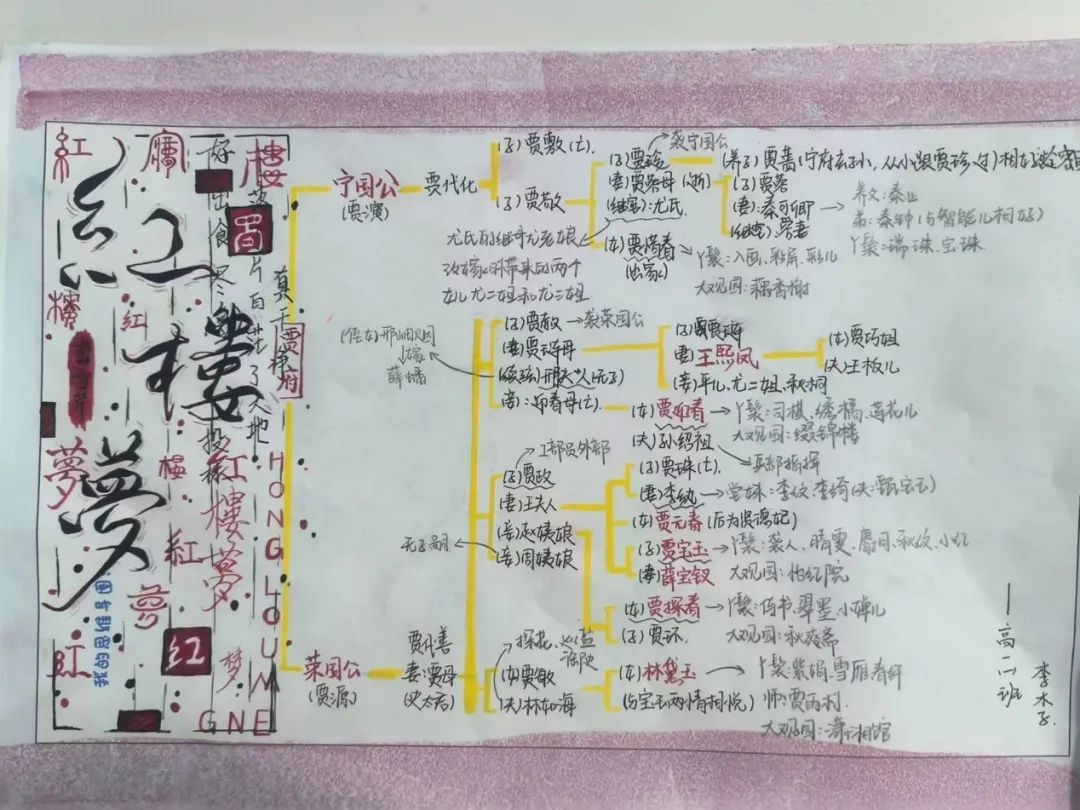 紅樓夢
红楼梦
好一似食尽鸟投林
落了片白茫茫大地真干净
HONGLOUMENG
我的思维导图
贾府
宁国公
(贾演)
贾代化
(子)贾敷(亡).
(子)贾敬
(子)贾珍
袭宁国公
(继室):尤氏
(养子)贾蔷(宁府玄孙,从小跟贾珍过)
(子)贾蓉
(妻):秦可卿
养父:秦业
弟:秦钟(与智能儿相好)
丫鬟:瑞珠、宝珠
(出家)
丫鬟:入画、彩屏、彩儿
大观园:藕香榭
尤氏的继母尤老娘
改嫁时所带来的两个
女儿尤二姐和尤三姐
袭荣国公
(侄女)邢岫烟
嫁
薛蟠
(妾):迎春母(亡).
(妻)王熙凤
(妾)平儿、尤二姐、秋桐
(女)贾巧姐
(夫)王板儿
(女)贾迎春
丫鬟:司棋、绣橘、莲花儿
大观园:缀锦楼
(夫)孙绍祖
工部员外部
(子)贾政
(妻)王夫人
(妾)赵姨娘
(妾)周姨娘
无子嗣
(子)贾珠(亡).
(妻)李纨
堂妹:李纹、李绮(夫:甄宝玉)
(女)贾元春(后为贤德妃)
(子)贾宝玉
丫鬟:袭人、晴雯、麝月、秋纹、小红
(妻)薛宝钗
大观园:怡红院
(女)贾探春
丫鬟:侍书、翠墨、小蝉儿
(子)贾环.
大观园:秋爽斋
荣国公
(贾源)
贾代善
妻:贾母
(史太君)
探花、巡盐
(女)贾敏
(夫)林如海
(女)林黛玉
(与宝玉两情相悦)
丫鬟:紫鹃、雪雁、春纤
师:贾雨村.
大观园:潇湘馆
——高一二班
李木子